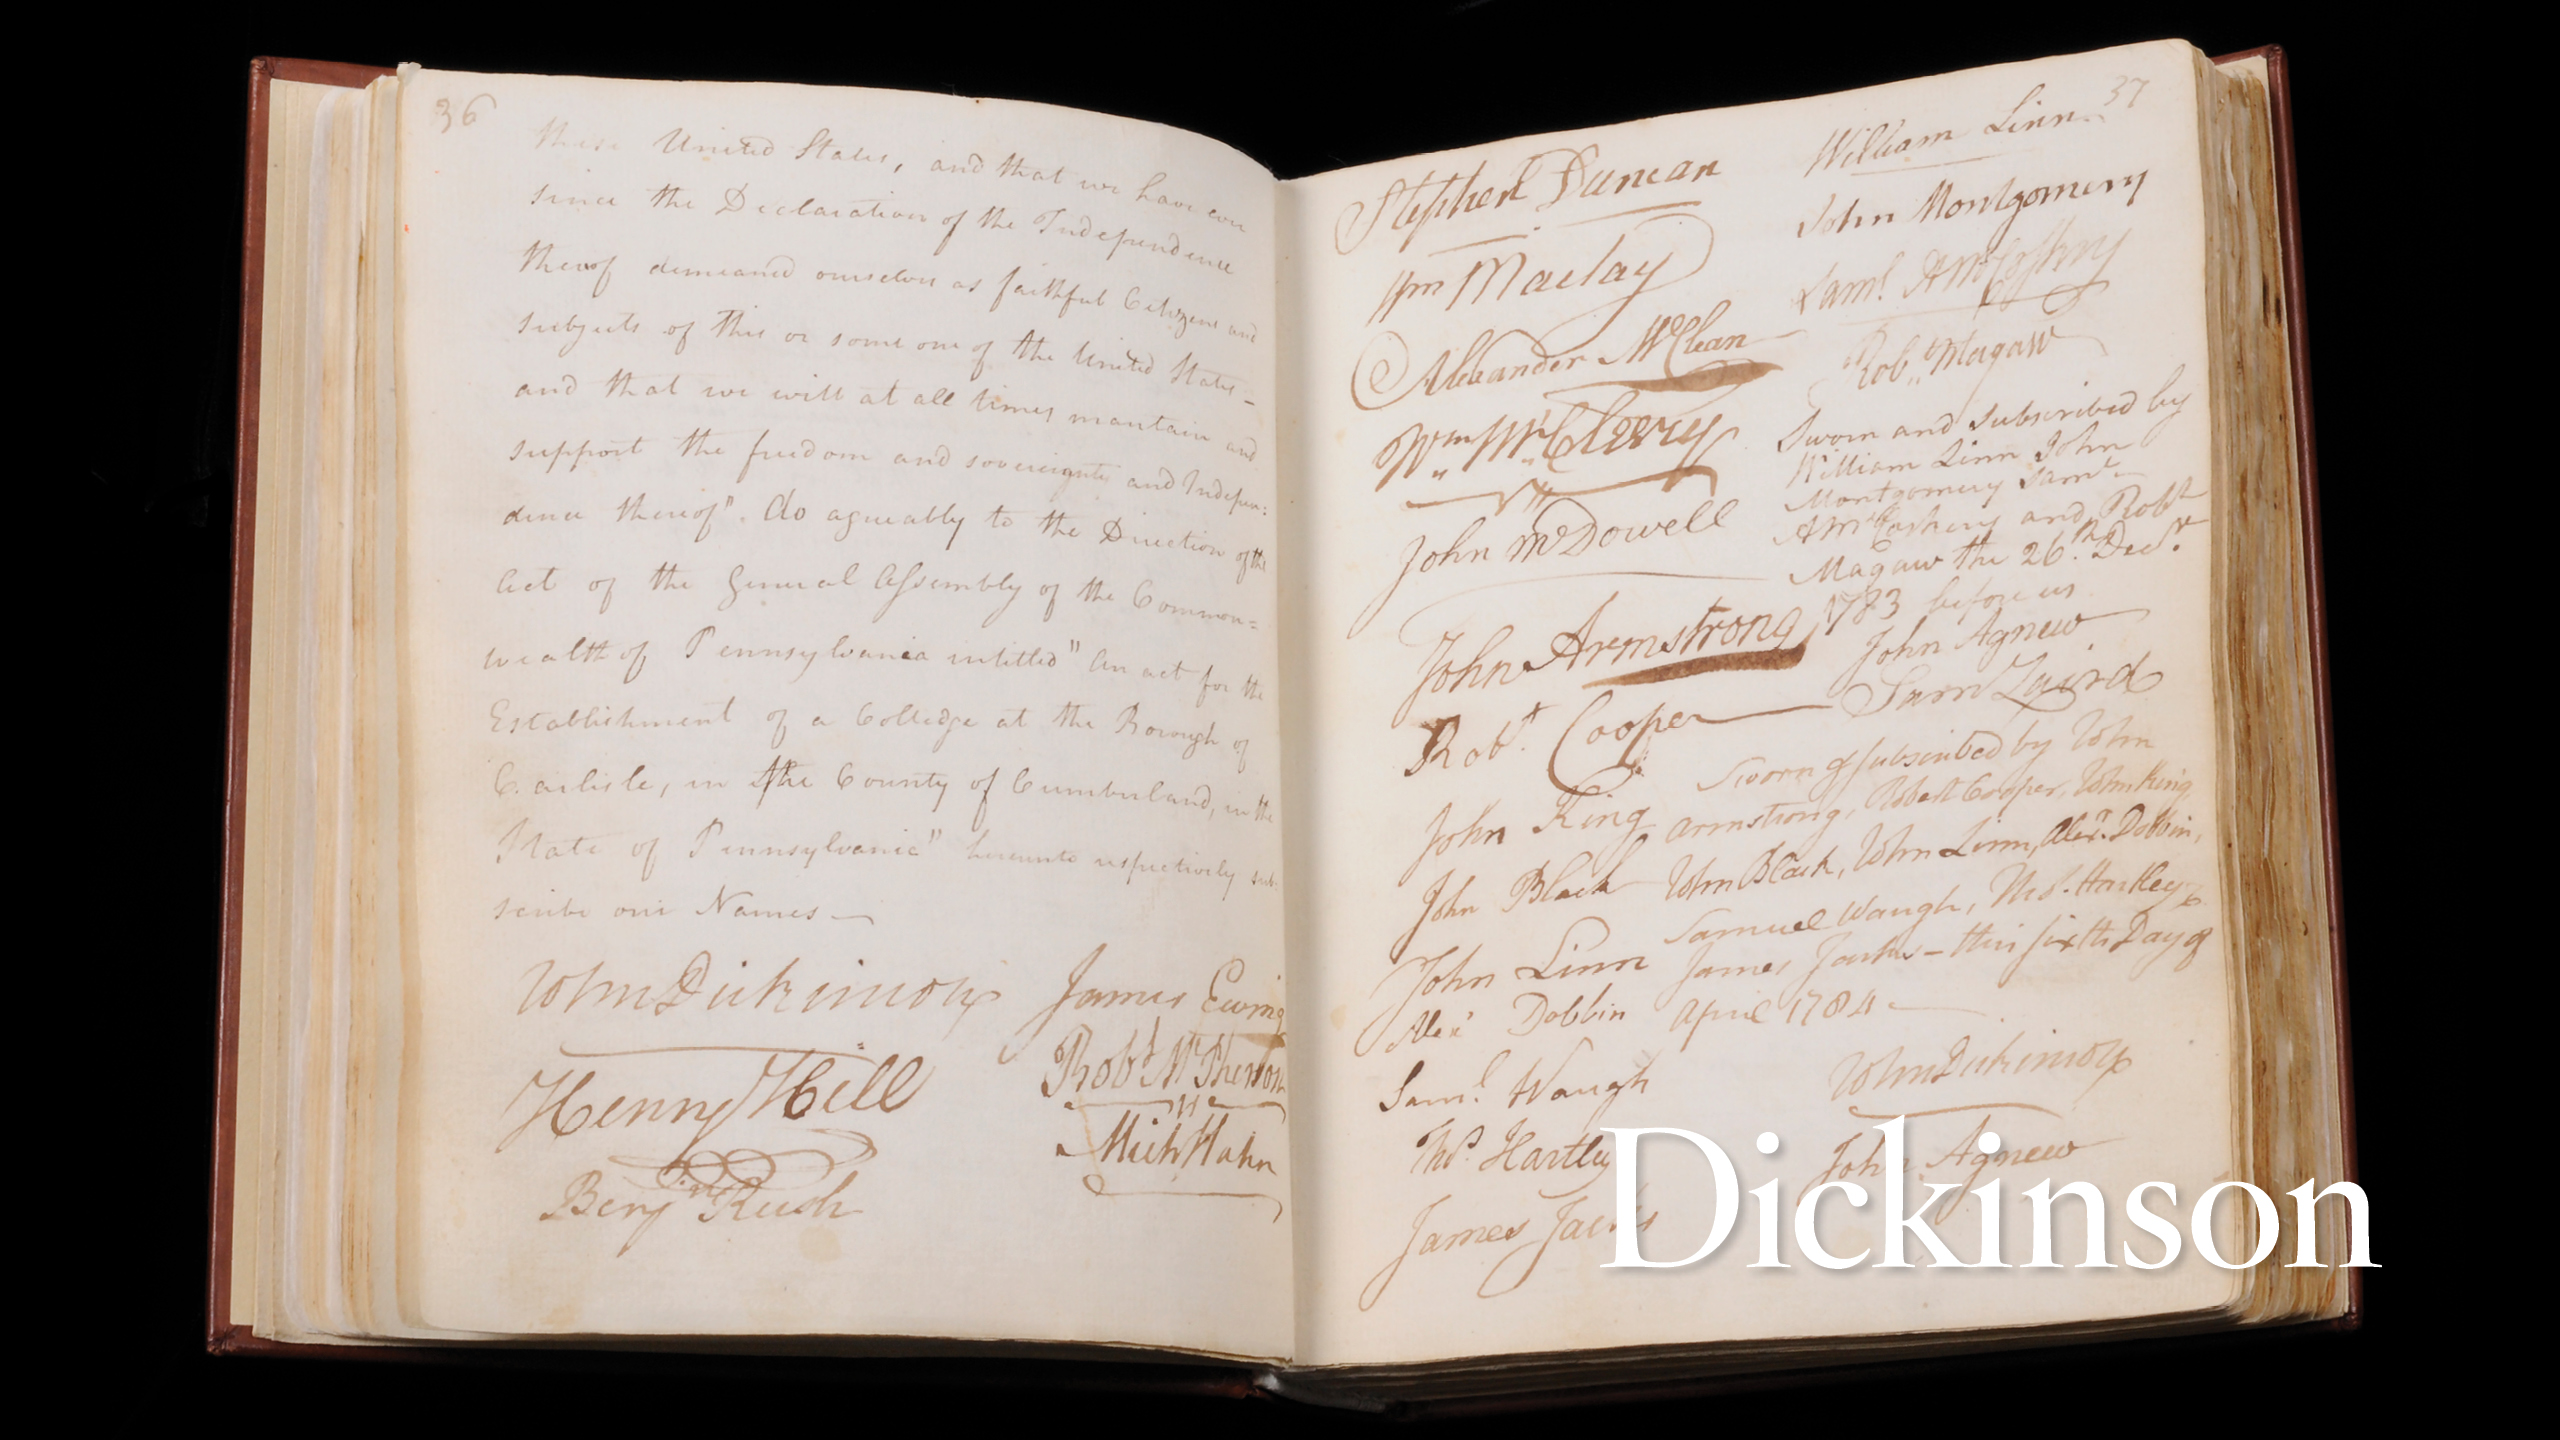 36
these United States, and that we have ever
since the Declaration of the Independence
thereof demeaned ourselves as faithful Citizens and
subjects of this or some one of the United States –
and that we will at all times maintain and
support the freedom and sovereignty and Indepen:
dence thereof". do agreeably to the Direction of the
Act of the General Assembly of the Common=
wealth of Pennsylvania intitled "An act for the
Establishment of a Colledge at the Borough of
Carlisle, in the County of Cumberland, in the
State of Pennsylvania" hereunto respectively sub:
scribe our Names —
John Dickinson
Henry Hill
Benjn Rush
James Ewing
Robt McPherson
Mich Hahn
37
Stephen Duncan
Wm Maclay
Alexander McClean
Wm McCleery
John McDowell
John Armstrong
Robt. Cooper
John King
John Black
John Linn
Alexr Dobbin
Saml Waugh
Thos. Hartley
James Jacks
William Linn
John Montgomery
Saml. A McCoskry
Robt Magaw
Sworn and subscribed by
William Linn John
Montgomery Saml
A McCoskery and Robt
Magaw the 26th Decr.
1783 before us
John Agnew
Sam Laird
Sworn & subscribed by John
Armstrong, Robert Cooper, John King,
John Black, John Linn, Alexr. Dobbin,
Samuel Waugh, Thos. Hartley &
James Jacks – this sixth Day of
April 1784 —
John Dickinson
John Agnew
Dickinson